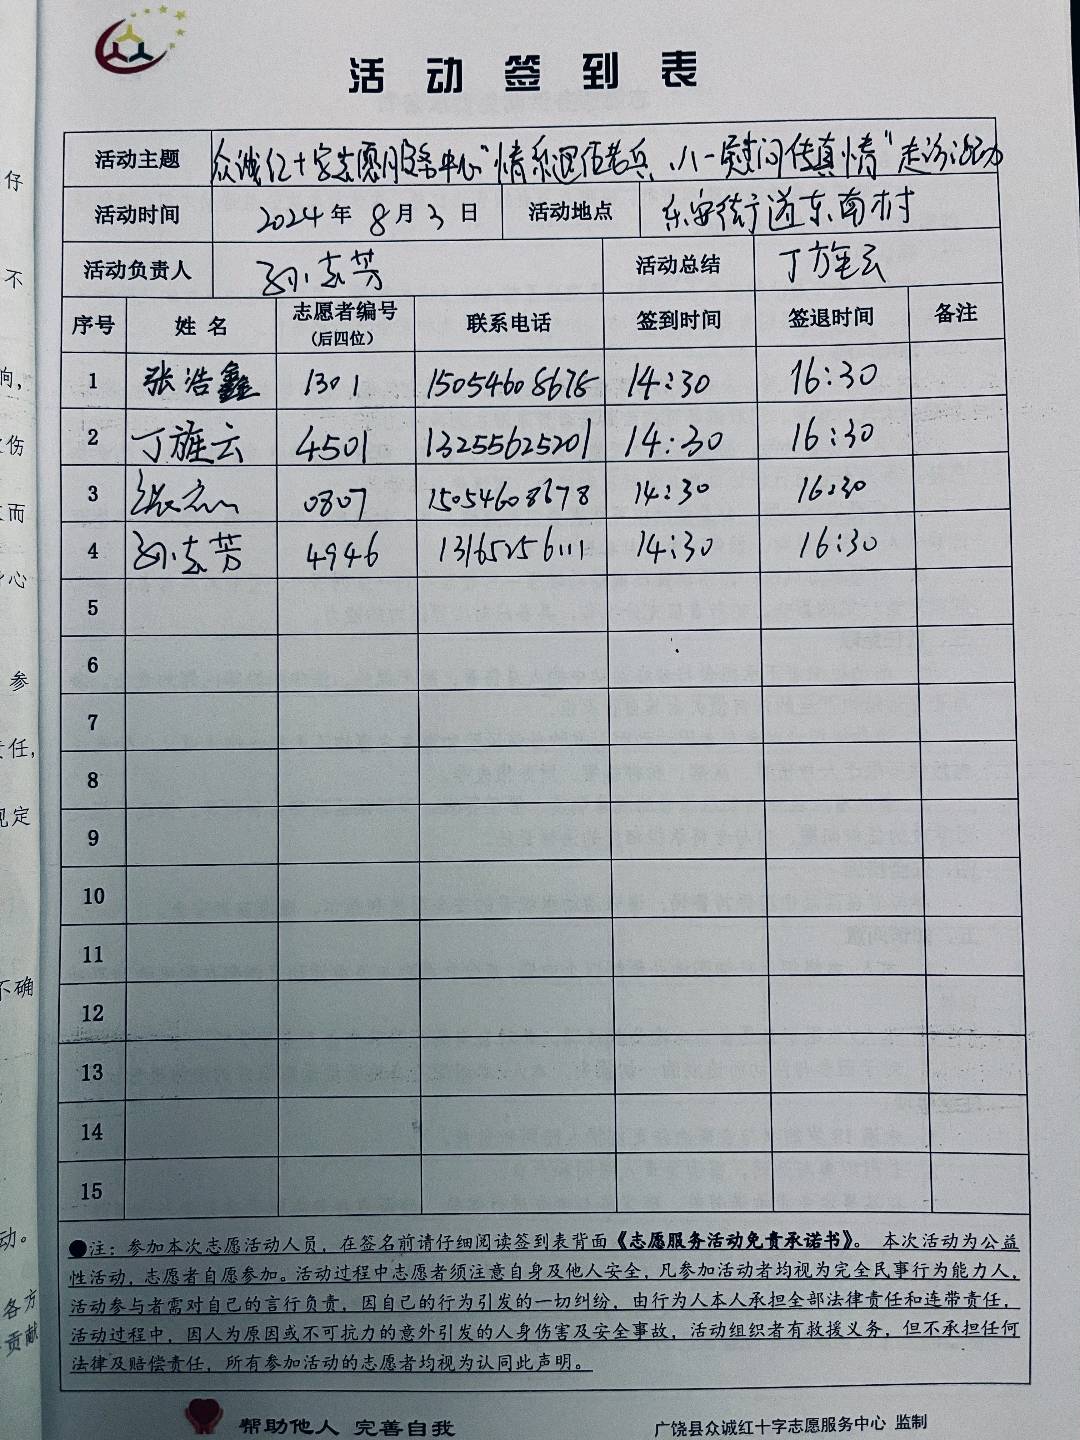 活动签到表
活动主题 众诚红十字志愿服务中心"情系退伍老兵 八一慰问传真情"走访活动
活动时间 2024年 8月3日 活动地点 乐安街道东南村
活动负责人 孙志芳 活动总结 丁旌云
序号 姓名 志愿者编号(后四位) 联系电话 签到时间 签退时间 备注
1 张浩鑫 1301 15054608678 14:30 16:30
2 丁旌云 4501 13255625201 14:30 16:30
3 0807 15054608678 14:30 16:30
4 孙志芳 4946 13165256111 14:30 16:30
5
6
7
8
9
10
11
12
13
14
15
●注：参加本次志愿活动人员，在签名前请仔细阅读签到表背面《志愿服务活动免责承诺书》。本次活动为公益
性活动，志愿者自愿参加。活动过程中志愿者须注意自身及他人安全，凡参加活动者均视为完全民事行为能力人，
活动参与者需对自己的言行负责，因自己的行为引发的一切纠纷，由行为人本人承担全部法律责任和连带责任，
活动过程中，因人为原因或不可抗力的意外引发的人身伤害及安全事故，活动组织者有救援义务，但不承担任何
法律及赔偿责任，所有参加活动的志愿者均视为认同此声明。
帮助他人 完善自我 广饶县众诚红十字志愿服务中心 监制
仔
不
响，
伤
而
心
参
责任，
规定
不确
动。
各方
贡献